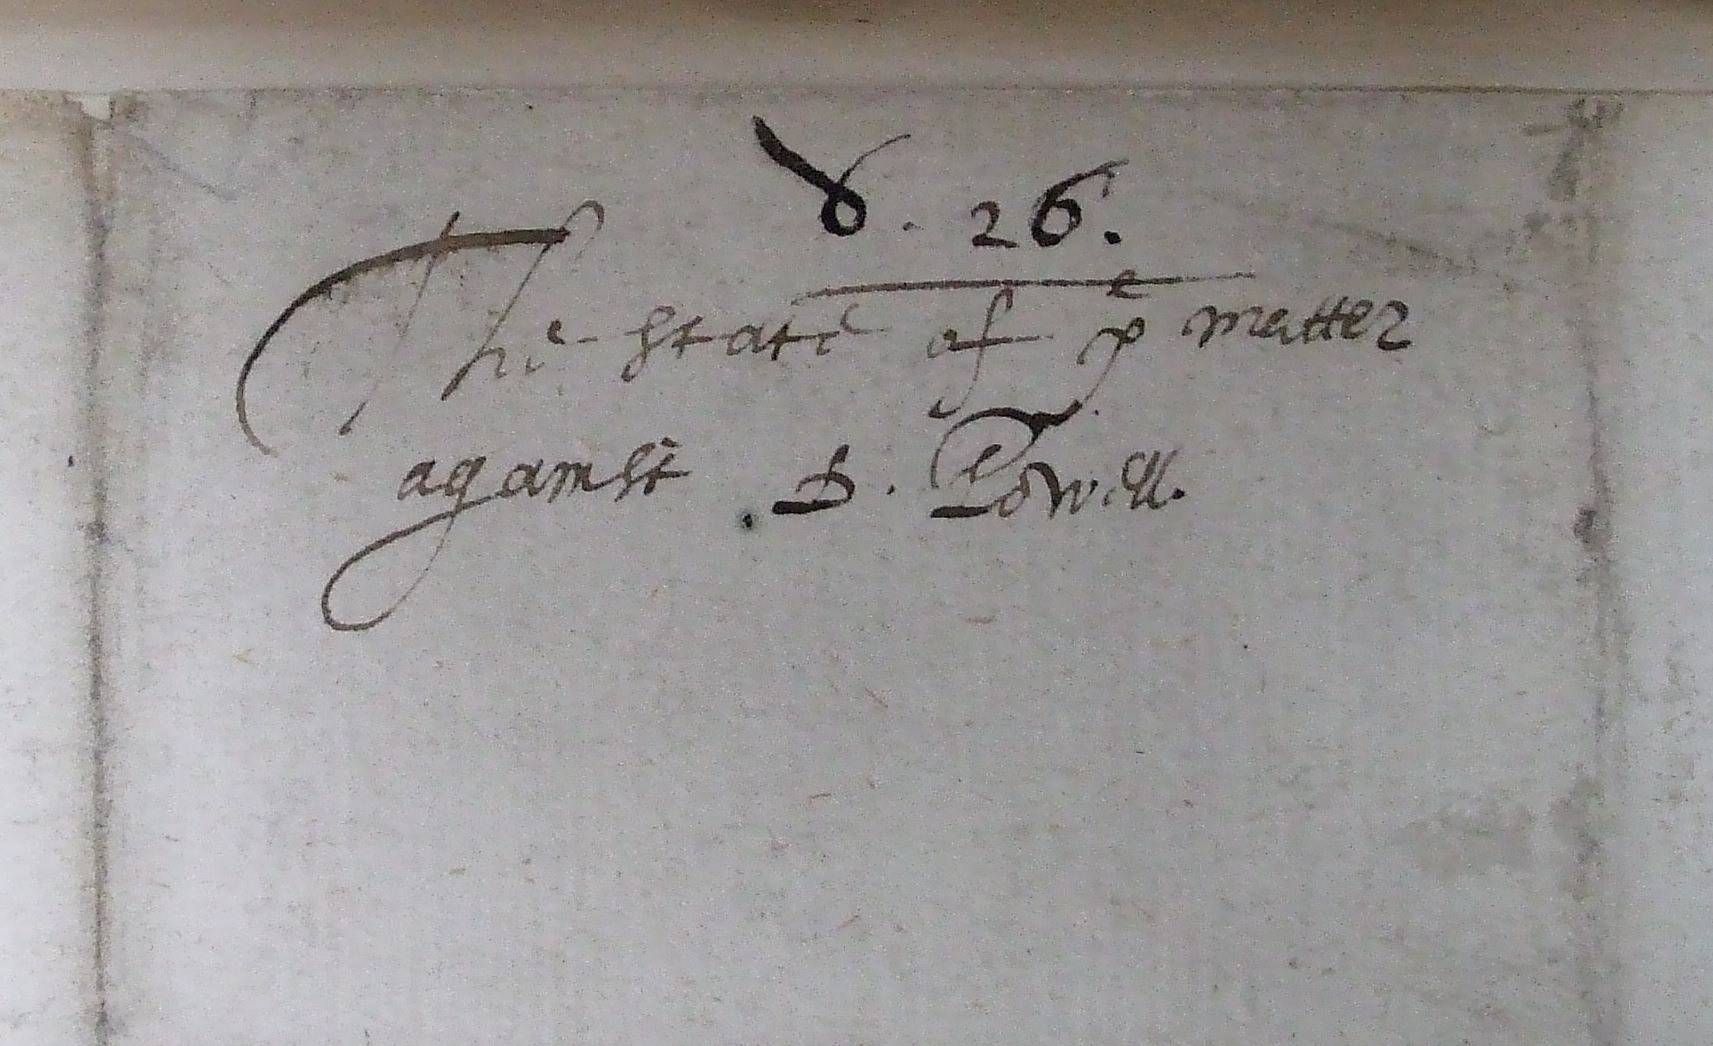 8. 26.
The state of yͤ matter
against D. Powell.